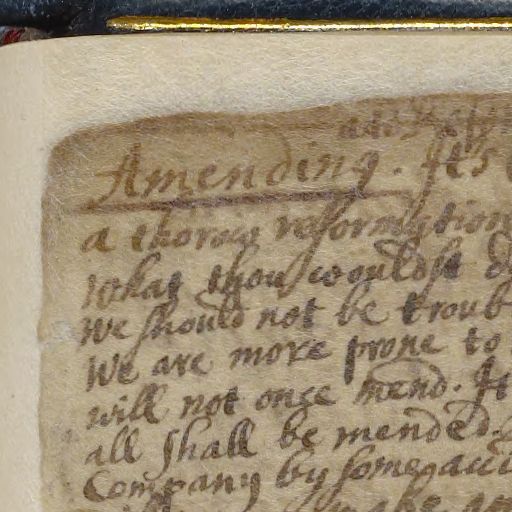 Amending. It's
a thorow reformation
What thou wouldst
We should not be troub
We are more prone to
will not once mend. It
all shall be mended.
Company by some
make